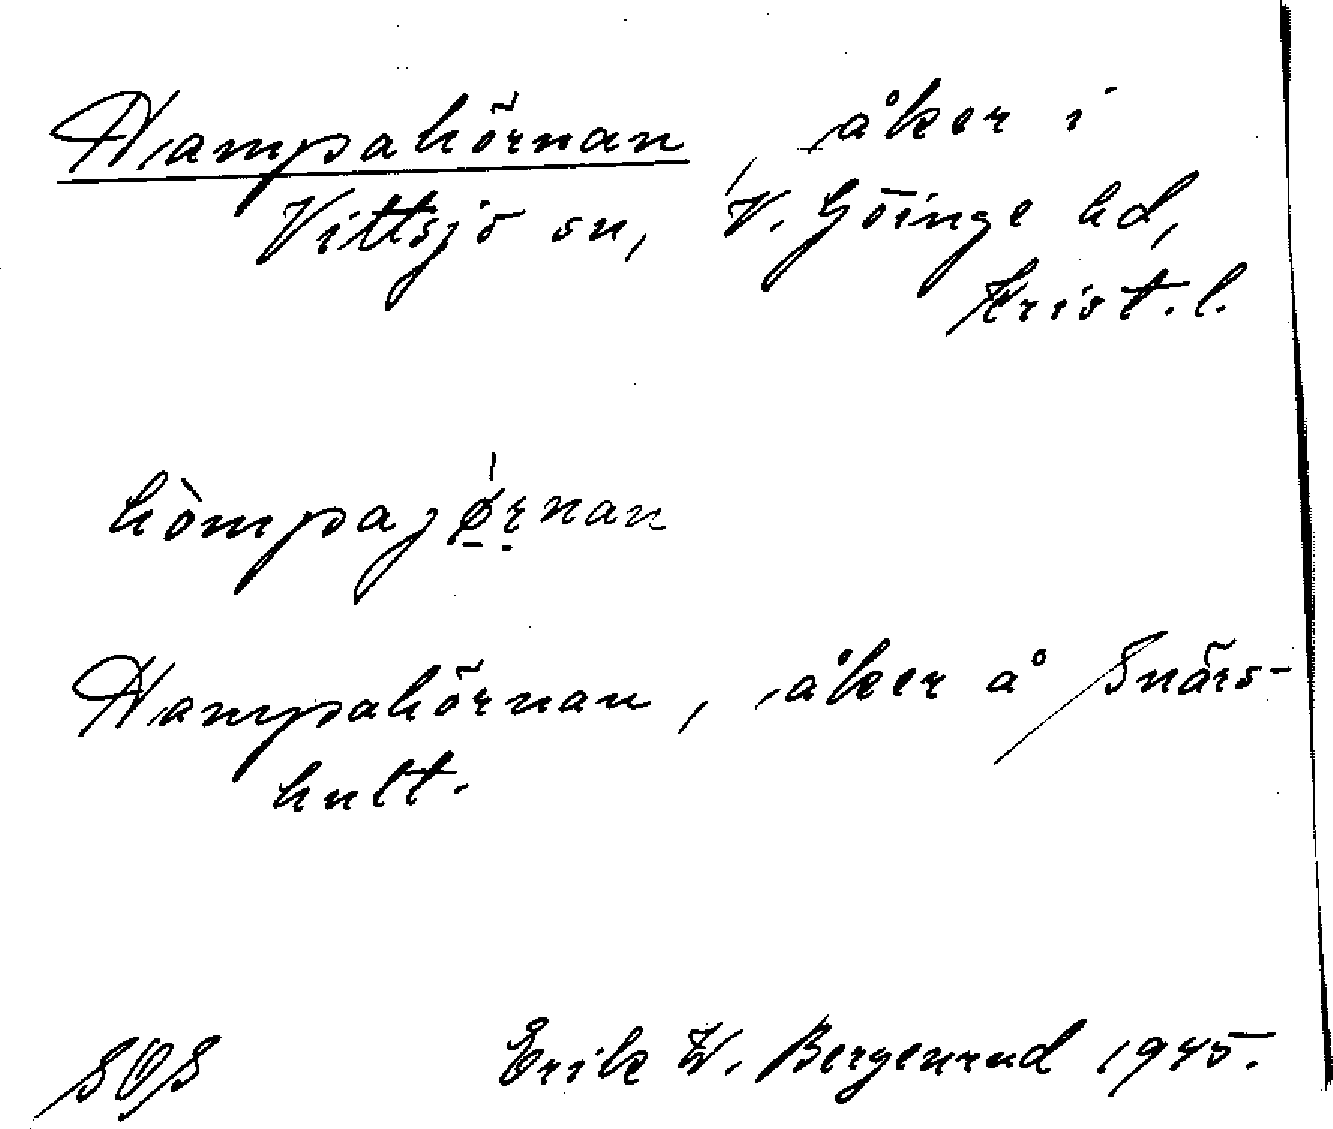 Hampahörnan, åker i
Vittsjö sn, V. Göinge hd,
Krist. l.
hòmpajø̠ṛnan
Hampahörnan, åker å Snärs-
hult.
SOS Erik W. Bergenrud 1945.